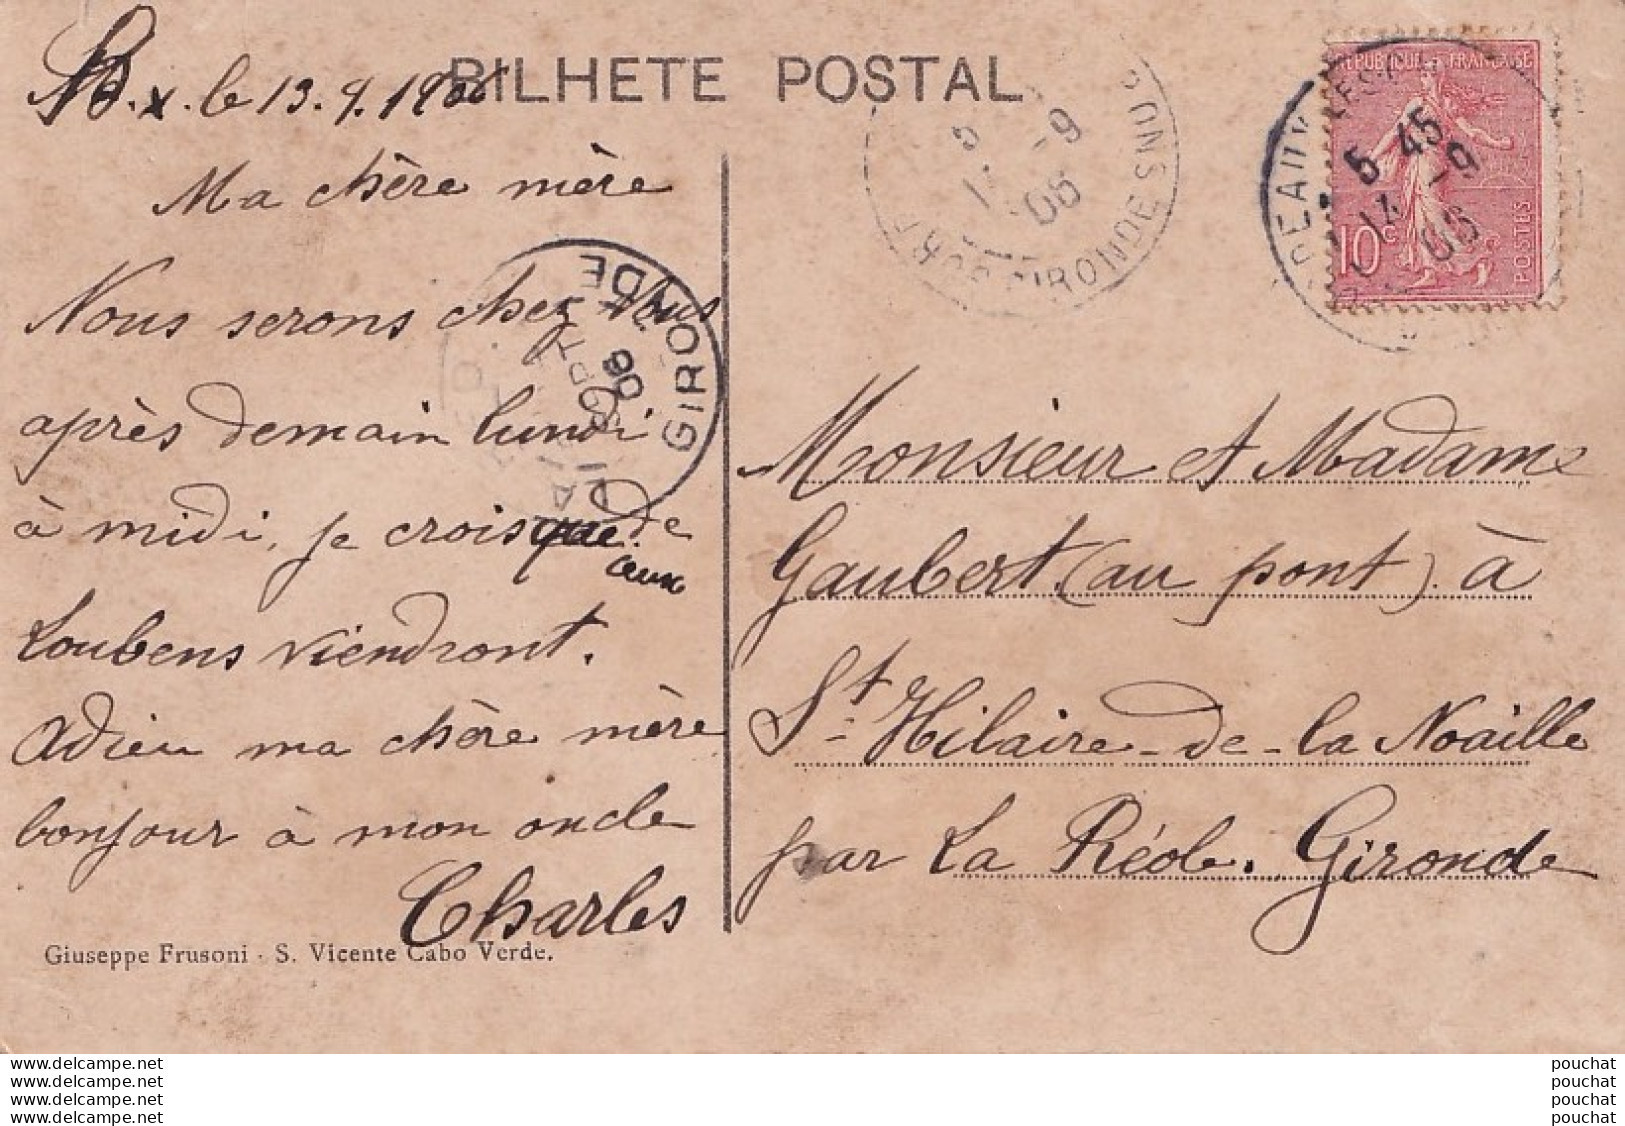 BILHETE POSTAL
Bx. le 13.9.1906
Ma chère mère
Nous serons chez Vous
après demain lundi
à midi, je crois que de
ceux
Loubens viendront.
Adieu ma chère mère
bonjour à mon oncle
Charles
Giuseppe Frusoni - S. Vicente Cabo Verde.
GIRONDE
06
GIRONDE
-9
06
REPUBLIQUE FRANÇAISE
10c
POSTES
5 45
14 -9
06
Monsieur et Madame
Gaubert (au pont) à
St Hilaire-de-la Noaille
par La Réole. Gironde
www.delcampe.net
www.delcampe.net
www.delcampe.net
www.delcampe.net
pouchat
pouchat
pouchat
pouchat